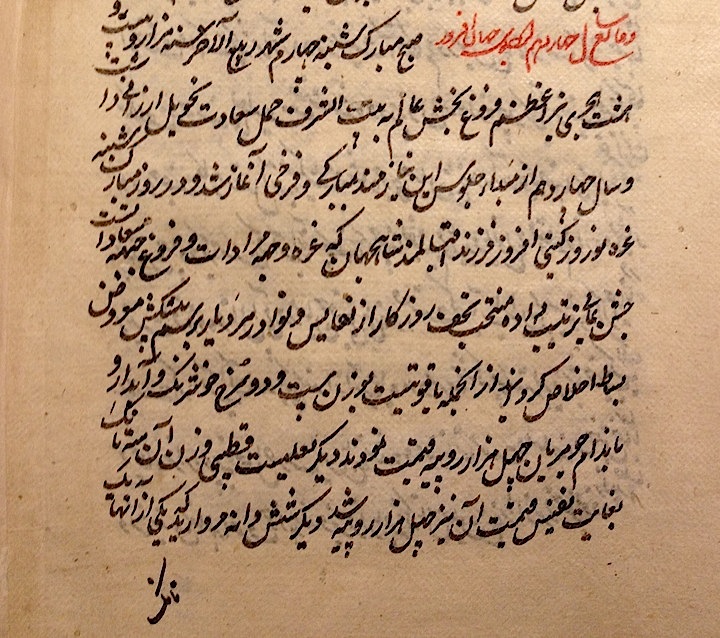 وقایع سال چهاردهم از جلوس جهان افروز صبح مبارک شنبه چهارم شهر ربیع الآخر سنه هزار و بیست و
هشت هجری نیر اعظم فروغ بخش عالم به بیت الشرف حمل سعادت تحویل ارزانی داشت
و سال چهاردهم از مبداء جلوس این نیازمند بمبارکی و فرخی آغاز شد و در روز مبارک شنبه
غره نوروز گیتی افروز فرزند اقبالمند شاهجهان که غره وجهه مرادات و فروغ جبهه سعاداتست
جشن عالی ترتیب داده منتخب تحف روزگار از نفایس و نوادر هر دیار برسم پیشکش معروض
بساط اخلاص گردانید از انجمله یاقوتیست بوزن بیست و دو سرخ خوشرنگ و آبدار و
باندام جوهریان چهل هزار روپیه قیمت نمودند دیگر لعلیست قطبی وزن آن سه تانک
بغایت نفیس قیمت آن نیز چهل هزار روپیه شد دیگر شش دانه مروارید که یکی از آنها یک